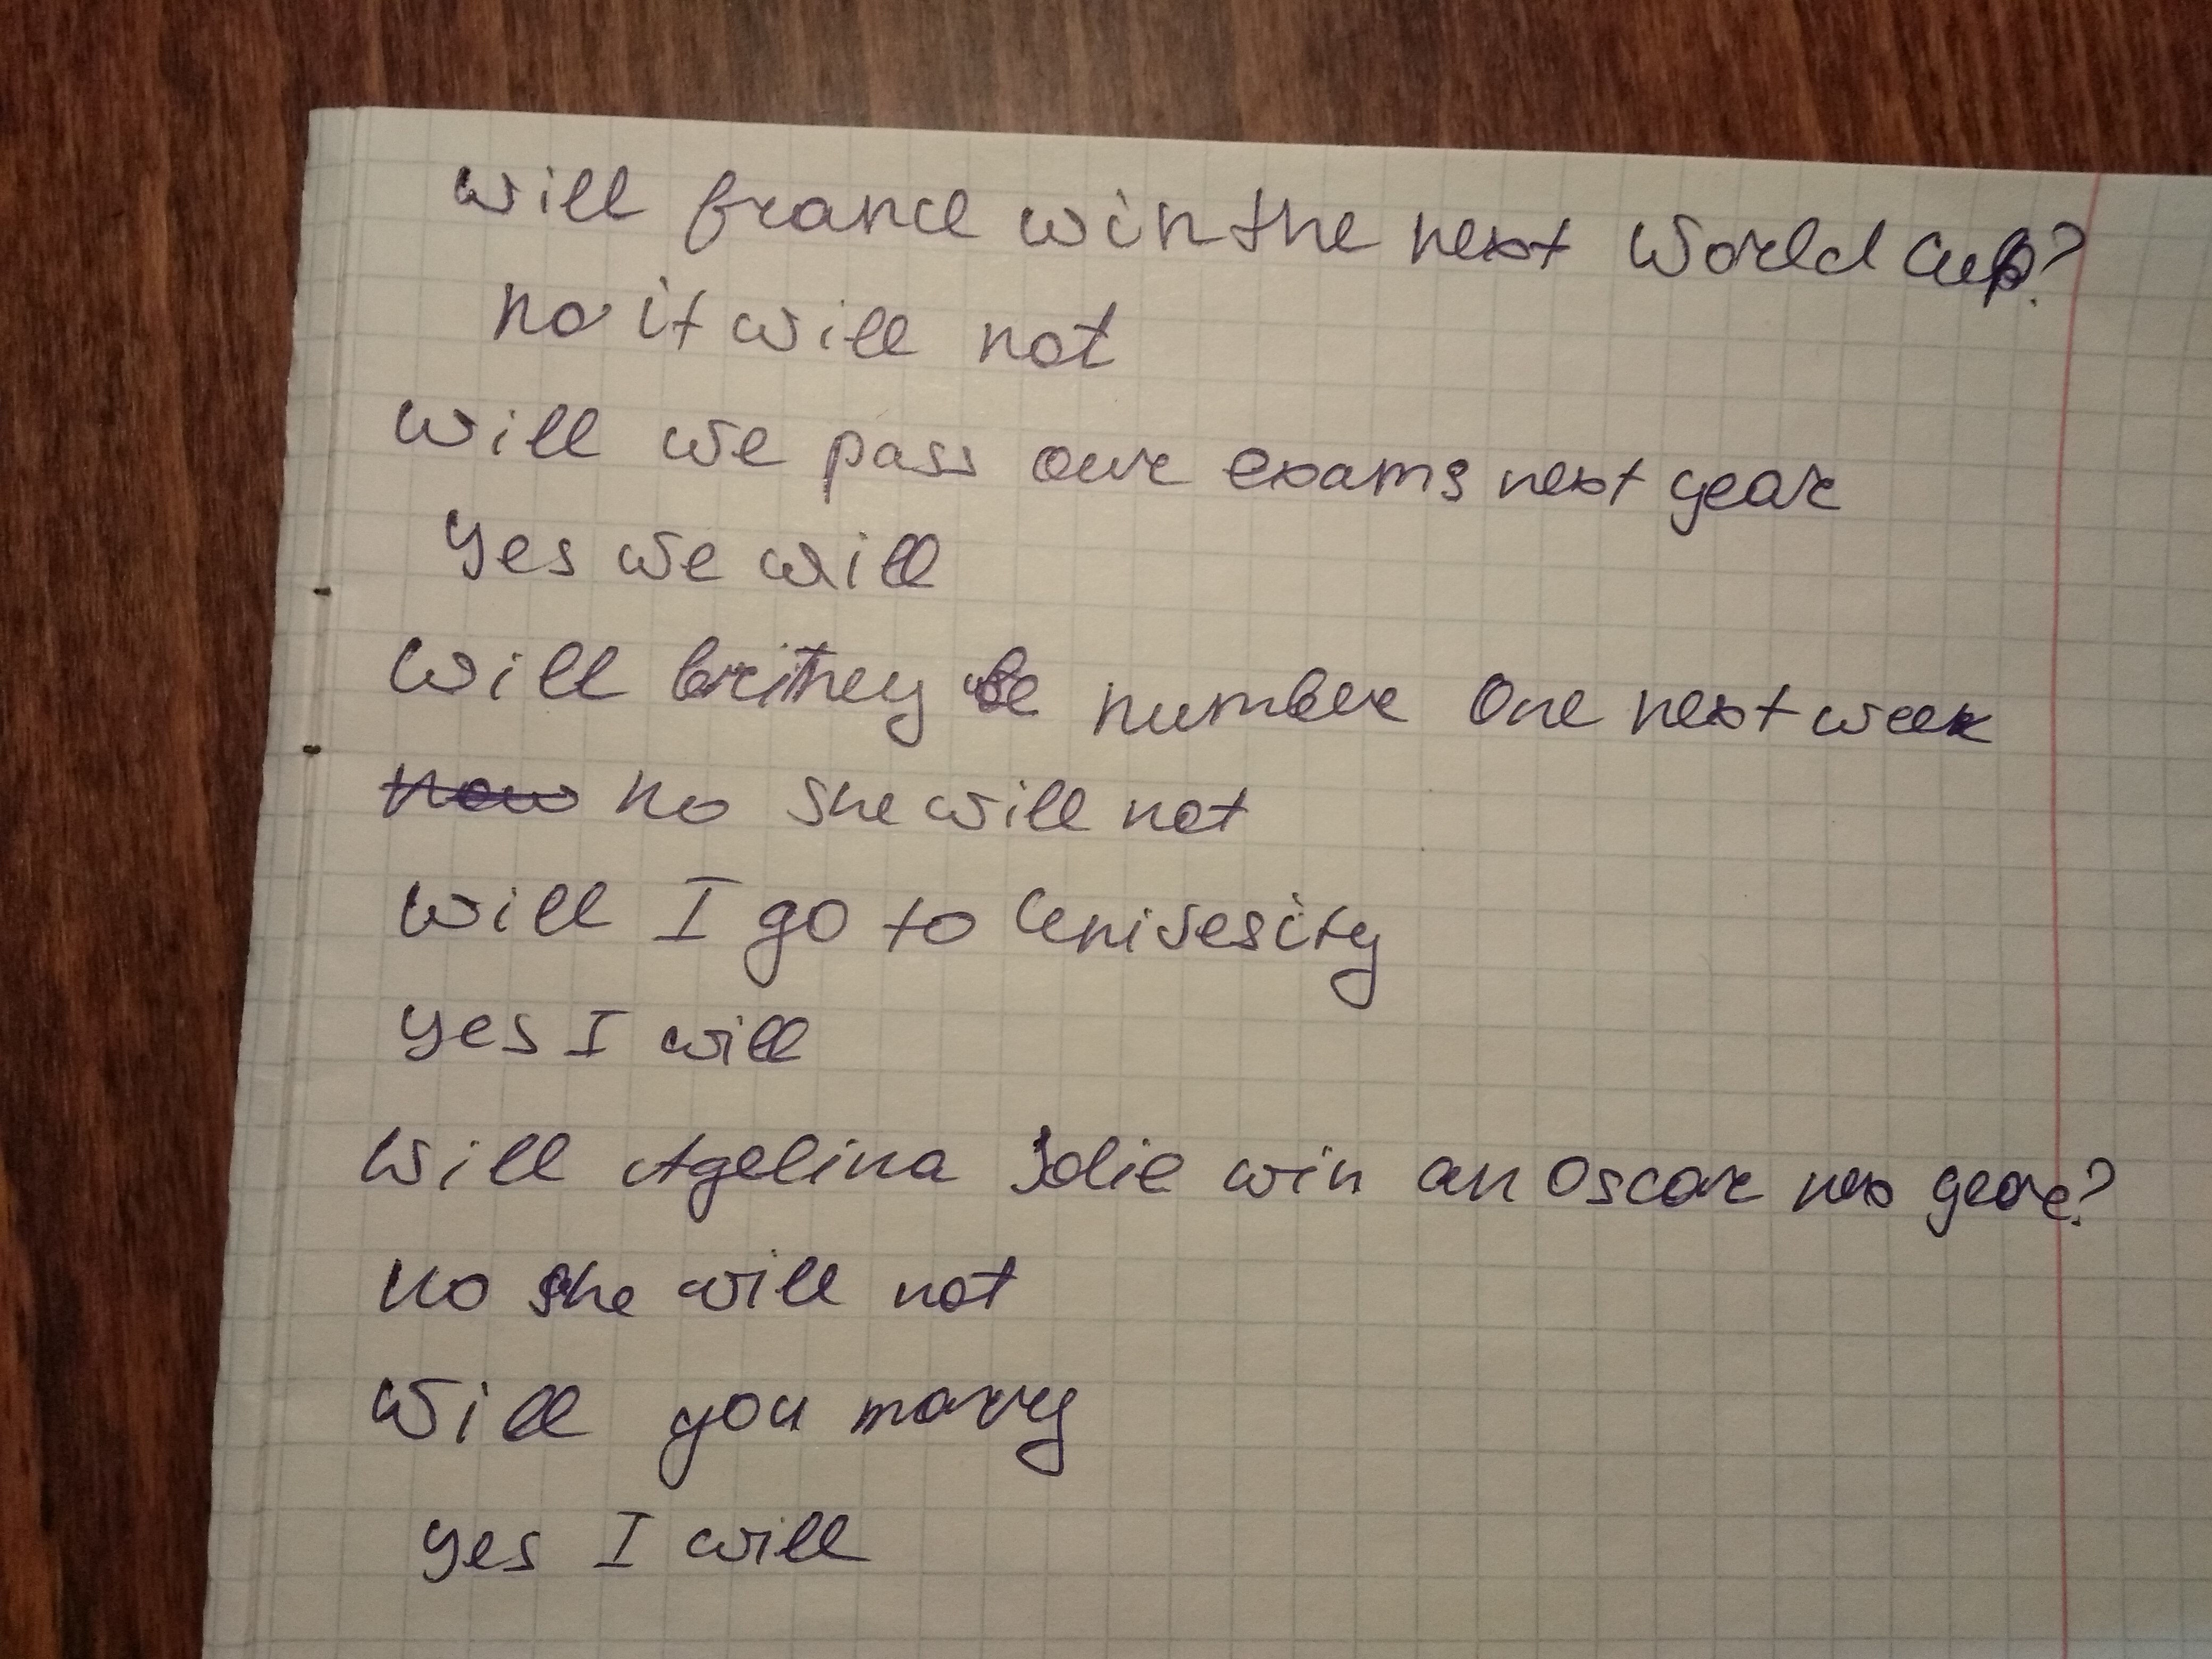 Will france win the next World Cup?
no it will not
Will we pass our exams next year
Yes we will
Will britney be number One next week
now no she will not
Will I go to Univesity
yes I will
Will Agelina Jolie win an Oscar nex year?
no she will not
Will you marry
yes I will